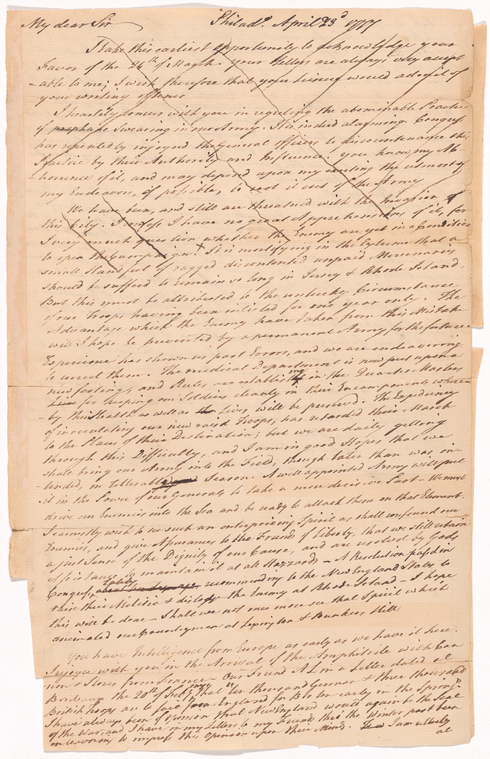 My dear Sir Philad.ª April 23ᵈ 1777
I take this earliest Opportunity to acknowledge your
Favor of the 24th of March. your Letters are always very accept
-able to me; I wish therefore that your Leisure would admit of
your writing oftener
I heartily concur with you in the abominable Practice
of prophane Swearing in our Army. It is indeed alarming. Congress
has repeatedly enjoyned the General officers to discountenance this
Practice by their Authority and Influence, you know my Ab
horrence of it, and may depend upon my making the utmost of
my Endeavor, if possible, to root it out of the Army
We have been, and still are threatned with the Invasion of
this City. I confess I have no great Apprehensions of it, for
I very much question whether the Enemy are yet in a Condition
to open the Campaign. It is mortifying in the extreme that a
small handful of ragged discontented unpaid Mercenaries
should be suffered to remain so long in Jersey & Rhode Island.
But this must be attributed to the unlucky Circumstance
of our Troops having been inlisted for one year only. The
Advantage which the Enemy have taken from this Mistake
will I hope be prevented by a permanent Army for the future
Experience has shown us past Errors, and we are endeavoring
to correct them. The medical Department is now put upon a
new footing, and Rules are establishing in the Quarter Masters
for keeping our Soldiers cleanly in their Incampments where
-by their Health as well as Lives will be preservd. The Expediency
of innoculating our new raisd Troops, has retarded their March
to the Places of their Destination; but we are daily getting
through this Difficulty, and I am in good Hopes that we
shall bring our Army into the Field, though later than was in-
tended, in tollerable Season. A well appointed Army will put
it in the Power of our Generals to take a more decisive Part. We must
drive our Enemies into the Sea and be ready to attack them on that Element.
I earnestly wish to see such an enterprizing Spirit as shall confound our
Enemies, and give Assurance to the Friends of Liberty, that we still retain
a just Sense of the Dignity of our Cause, and are resolved by Gods
Assistance to maintain it at all Hazard. A Resolution passd in
Congress, recommending to the New England States to
this will be done. Shall we not once more see that Spirit which
animated our people at Lexington & Bunkers Hill
You have Intelligence from Europe as early as we have it here.
I rejoyce with you in the Arrival of the Amphitrite with Can
non & Stores from France. Our Friend A L in a Letter dated at
Bordeaux the 20th of Feb.y that ten thousand Germans & three thousand
British troops are to sail from England for to be early in the Spring.
I have always been of opinion that New England would again be the Seat
of the War, and I have in my Letters to my Friends this the Winter past been